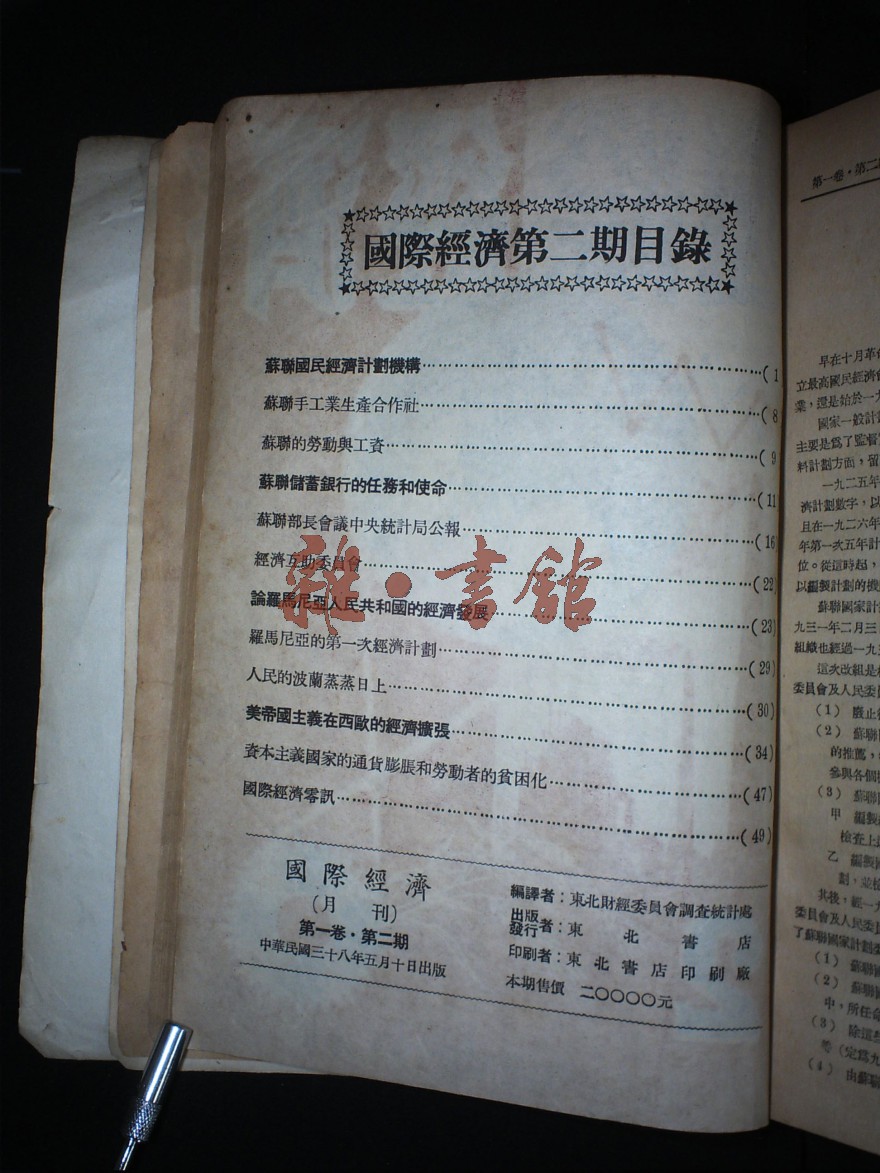 國際經濟第二期目錄
蘇聯國民經濟計劃機構……(1
蘇聯手工業生產合作社……(8
蘇聯的勞動與工資……(9
蘇聯儲蓄銀行的任務和使命……(11
蘇聯部長會議中央統計局公報……(16
經濟互助委員會……(22
論羅馬尼亞人民共和國的經濟發展……(23)
羅馬尼亞的第一次經濟計劃……(29)
人民的波蘭蒸蒸日上……(30)
美帝國主義在西歐的經濟擴張……(34)
資本主義國家的通貨膨脹和勞動者的貧困化……(47)
國際經濟零訊……(49)
雜·書館
國際經濟
(月刊)
第一卷·第二期
中華民國三十八年五月十日出版
編譯者:東北財經委員會調查統計處
出版發行者:東北書店
印刷者:東北書店印刷廠
本期售價 二〇〇〇〇元
第一卷·第二
早在十月革命
立最高國民經濟會
業,還是始於一九
國家一般計
主要是爲了監督
料計劃方面,留
一九二五年
濟計劃數字,以
且在一九二六年
年第一次五年計
位。從這時起,
以編製計劃的機
蘇聯國家計
九三一年二月三
組織也經過一九
這次改組是
委員會及人民委
(1) 廢止
(2) 蘇聯
的推薦,
參與各個
(3) 蘇聯
甲 編製
檢查上
乙 編製
劃,並
其後,經一九
委員會及人民委員
了蘇聯國家計劃委
(1) 蘇聯國
(2) 蘇聯國
中,所任命
(3) 除這些
(定爲九
(4) 由蘇聯